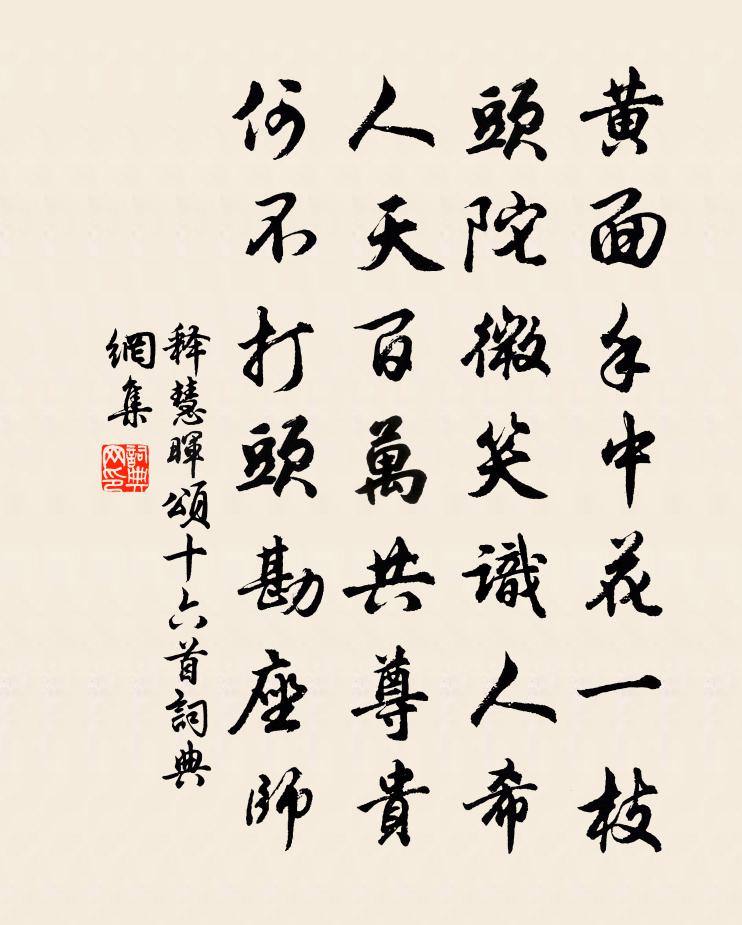 黄面手中花一枝
頭陀微笑識人希
人天百萬共尊貴
何不打頭勘座師
释慧暉頌十六首詞典
網集
詞典
网印